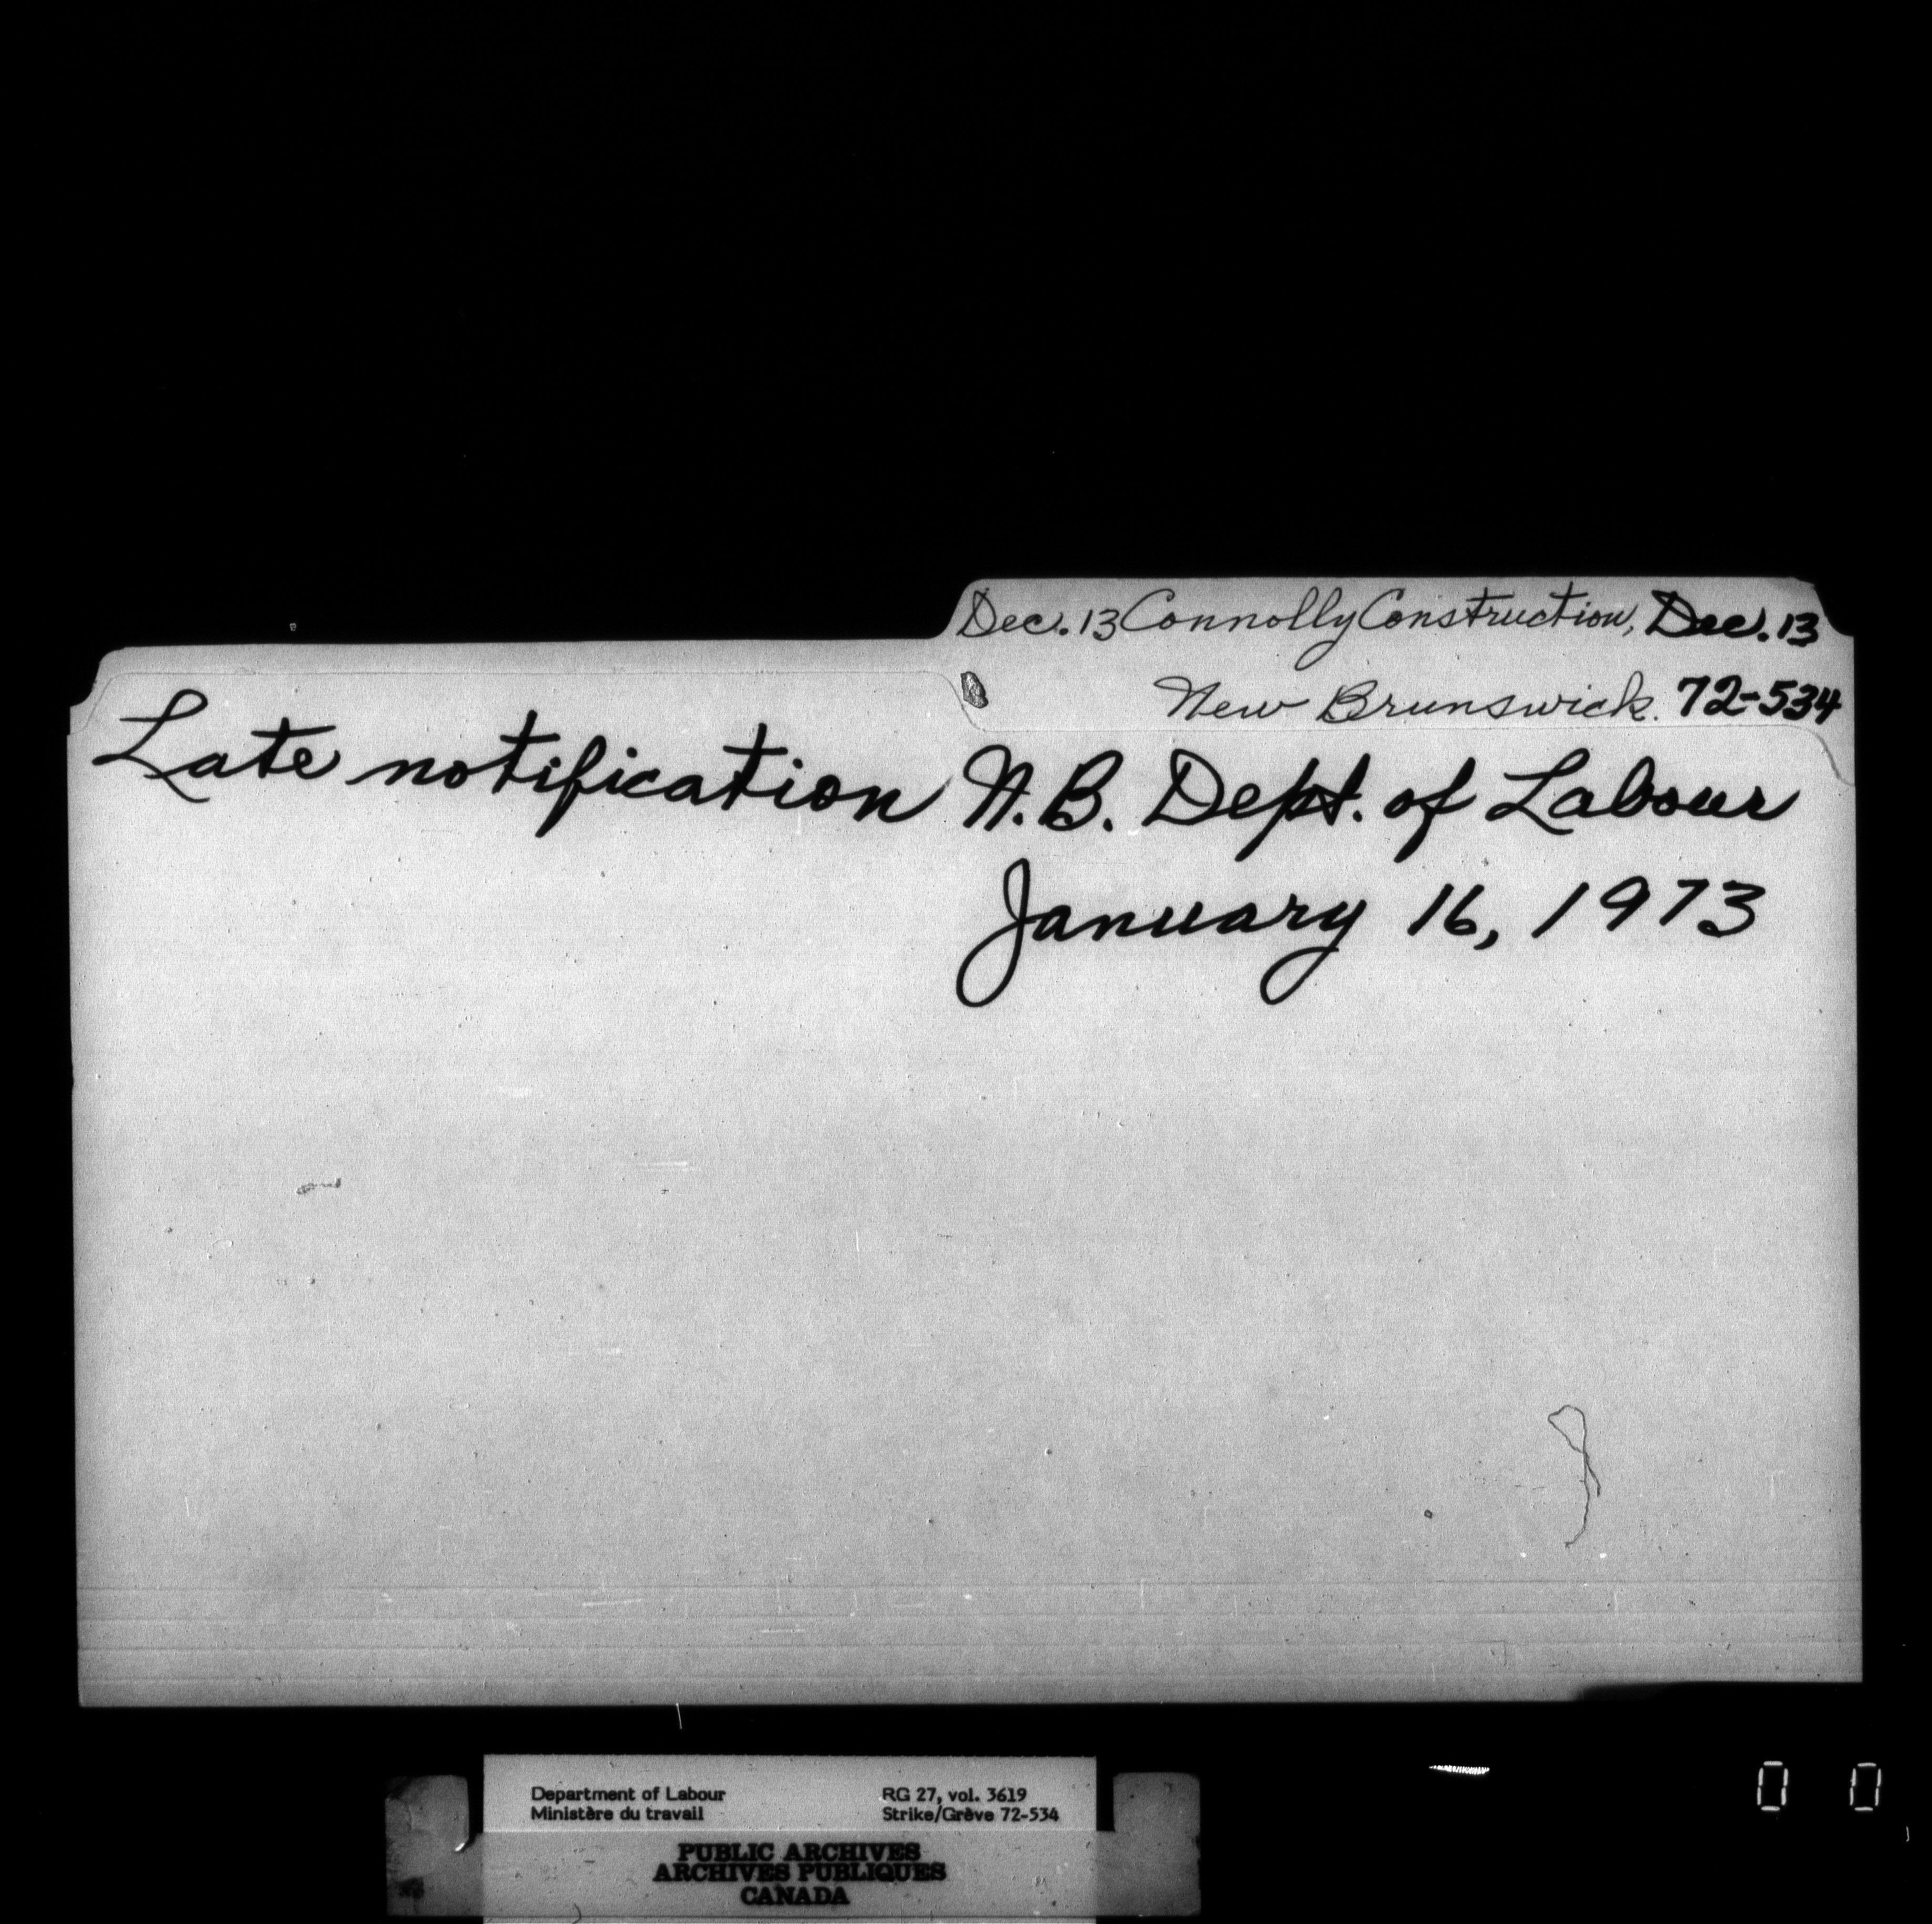 Dec. 13 Connolly Construction, Dec. 13
New Brunswick. 72-534
Late notification N.B. Dept. of Labour
January 16, 1973
Department of Labour RG 27, vol. 3619
Ministère du travail Strike/Grève 72-534
PUBLIC ARCHIVES
ARCHIVES PUBLIQUES
CANADA
0 0